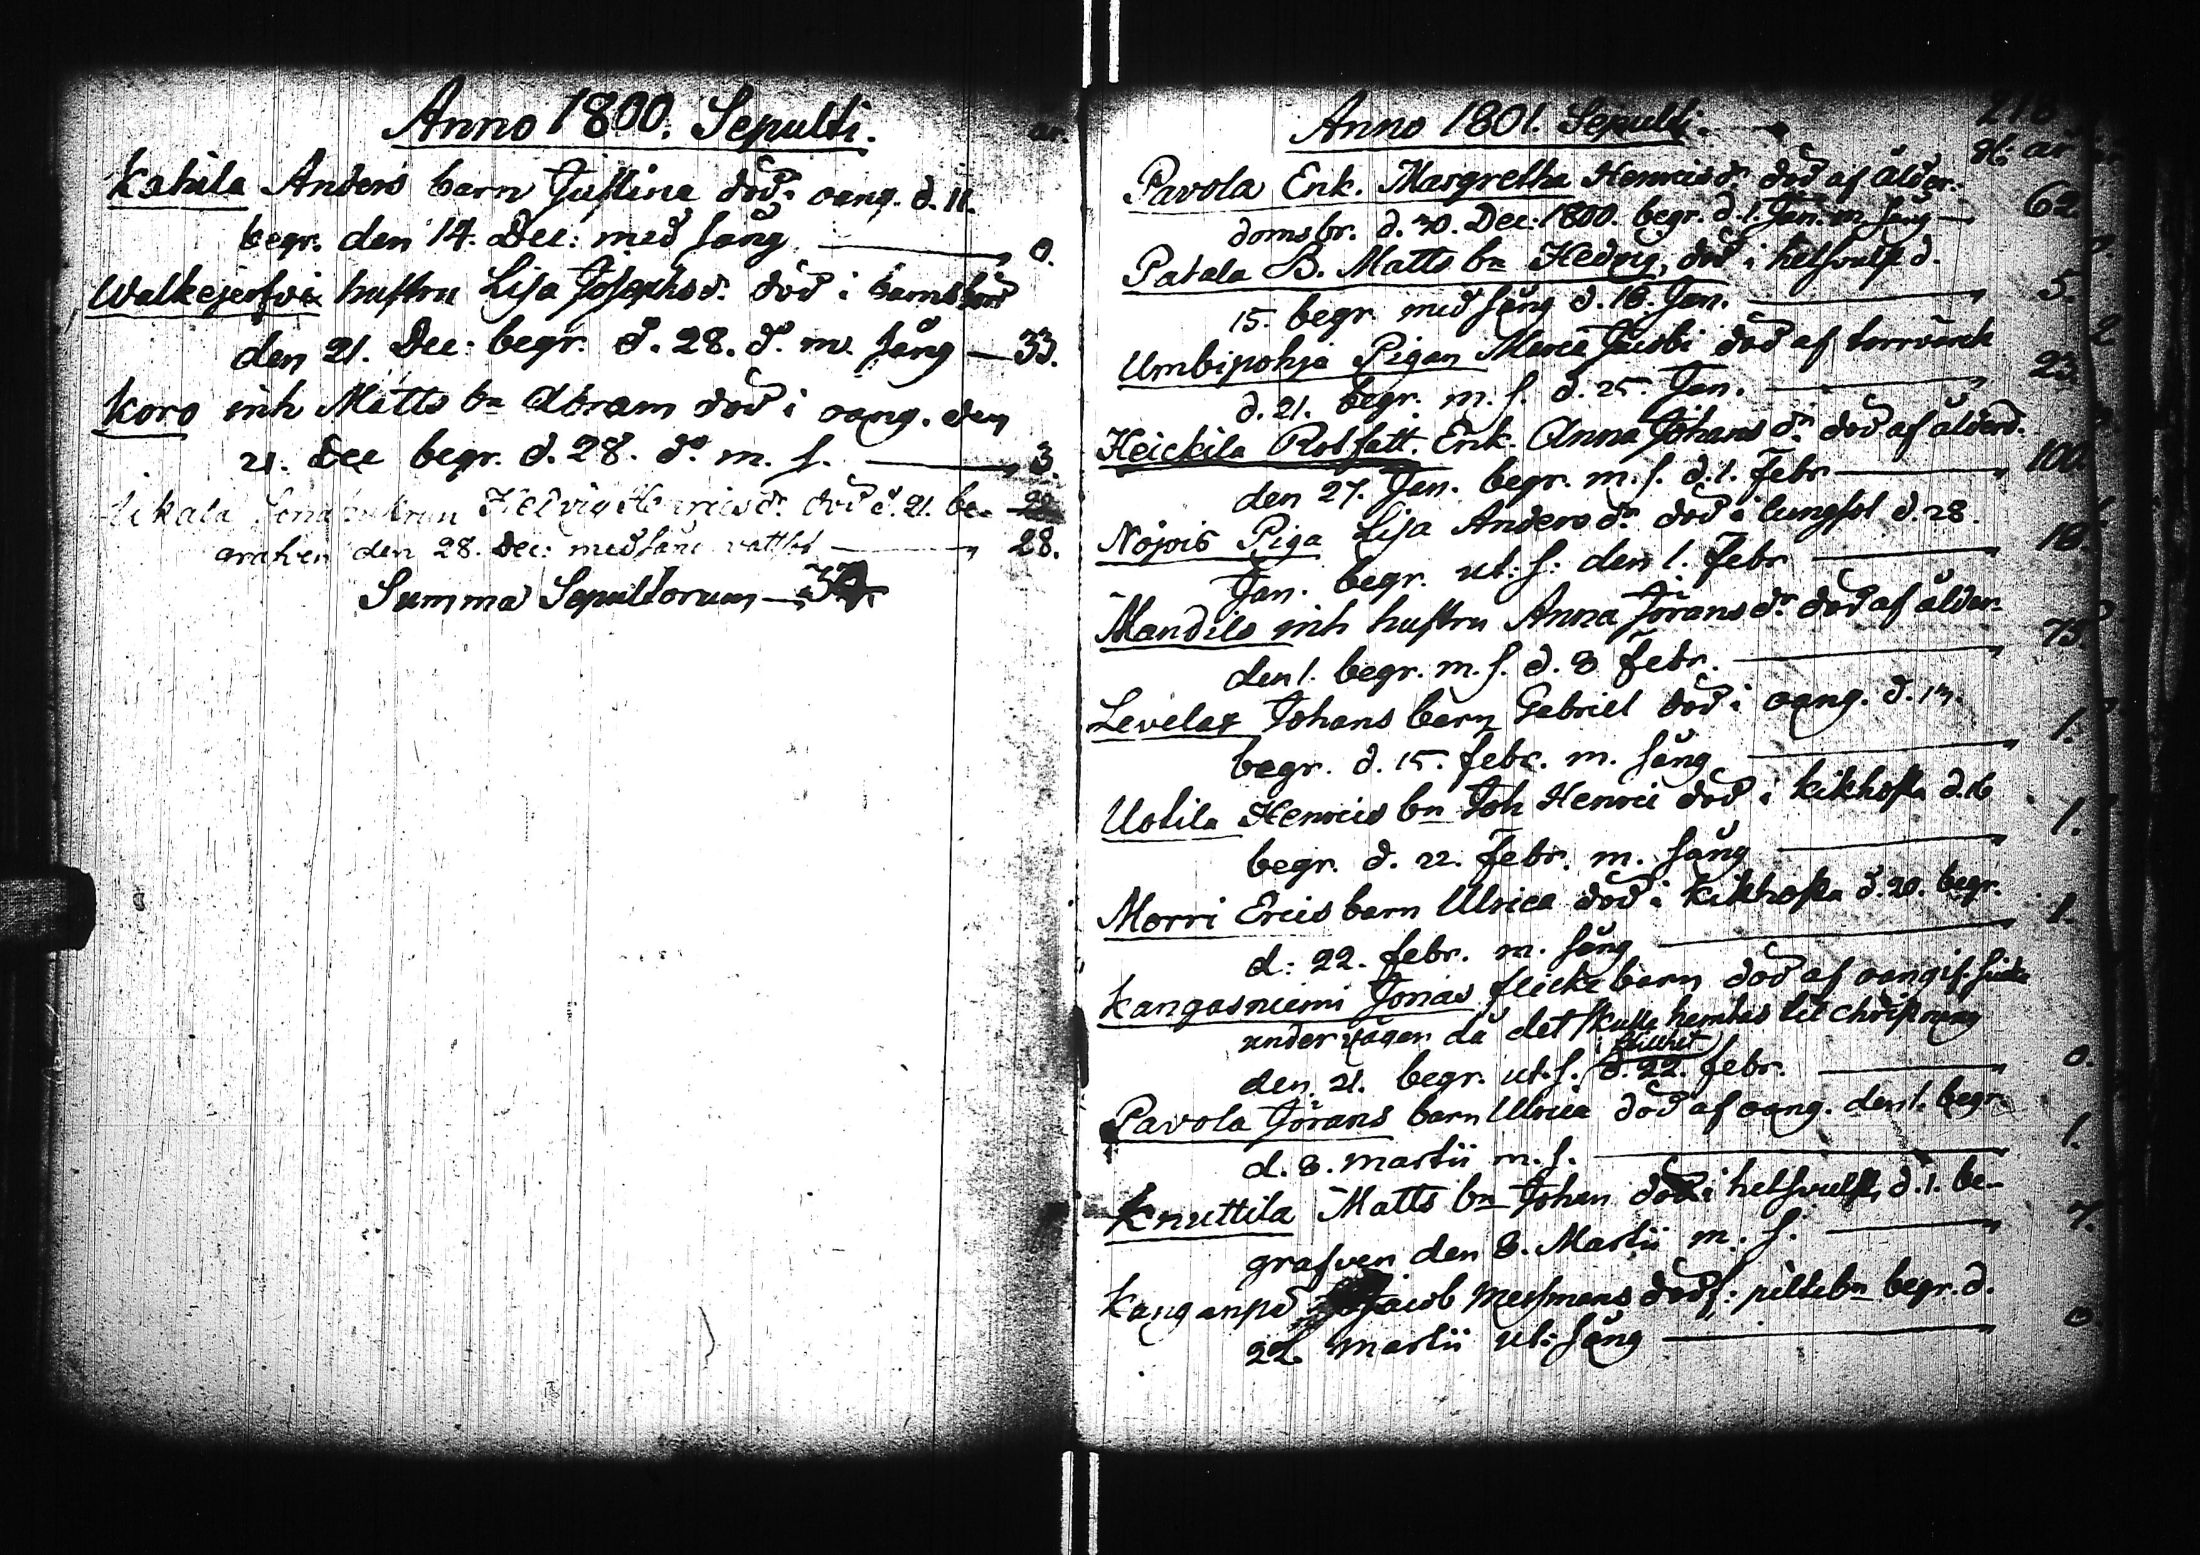 Anno 1800. Sepulti.
år.
Katila Anders barn Justina död. oang. d. 11.
begr. den 14. Dec: med sång — 0.
Walkejerfvi hustru Lisa Josephsdr. död i barnsbörd
den 21. Dec: begr. d. 28. do. m. sång — 33.
Koro inh Matts bn Abram död i oang. den
21. Dec begr. d. 28. do m. s. — 3.
Hedvig Henricsdr. död d. 21. be-
den 28. Dec: med sång — 28.
Summa Sepultorum —
Anno 1801. Sepulti.
218
år
Pavola Enk. Margretha Henricsdr död af ålder-
domsbr. d. 30. Dec: 1800. begr. d. 1. Jan. m. sång — 62.
Patala B. Matts bn Hedvig, död i helsvulst d.
15. begr. med sång d. 18. Jan. — 5.
Umbipohja Pigan Maria Jacobi död af torrvärk
d. 21. begr. m. s. d. 25. Jan. — 23.
Heickila Rotfatt. Enk. Anna Johansdr död af ålderd.
den 27. Jan. begr. m. s. d. 1. Febr — 100.
Nojois Piga Lisa Andersdr död i lungsot d. 28.
Jan. begr. ut: s: den 1. Febr — 18.
Mandila inh hustru Anna Jöransdr död af ålder-
den 1. begr. m. s. d. 8 Febr. — 75.
Levelax Johans barn Gabriel död i oang. d. 13.
begr. d. 15. febr. m. sång — 1.
Uotila Henrics bn Joh Henric död i kikhosta d. 16
begr. d. 22. Febr. m. sång — 1.
Morri Erics barn Ulrica död i kikhosta d. 20. begr.
d: 22. febr. m. sång — 1.
Kangasniemi Jonas flickebarn död af oangif. siuka
under vägen då det skulle hemtas til christning
i stillhet
den 21. begr. ut. s. d. 22. febr. — 0.
Pavola Jörans barn Ulrica död af oang. den 1. begr.
d. 8. martii m. s. — 1.
Knuttila Matts bn Johan död i helsvulst, d. 1. be-
grafven den 8. Martii m. s. — 7.
Kanganpä Jacob Messmans dödf: piltebn begr. d.
22. martii ut: sång — 0